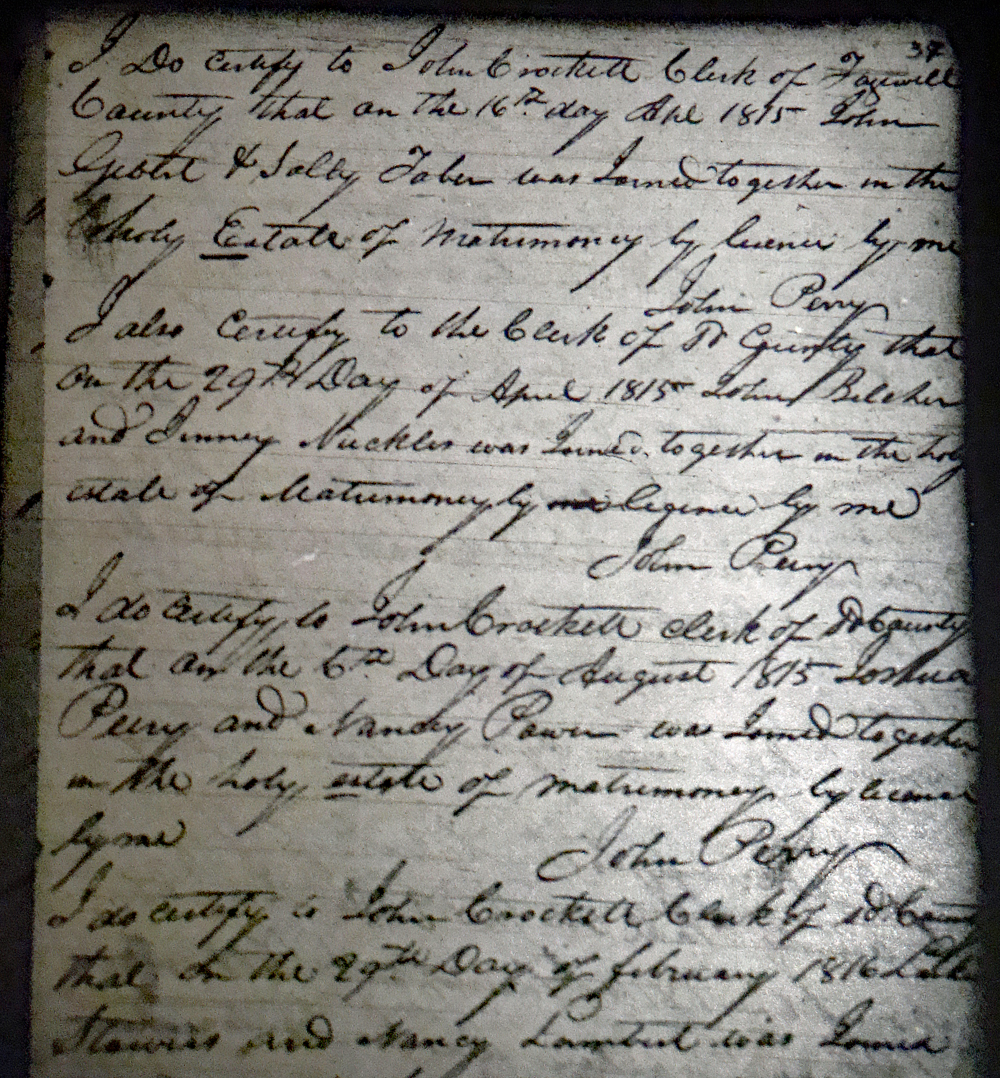 37
I Do certify to John Crockett Clerk of Tazwell
County that on the 16th day 1815 John
& Sally Taber was Joined together in the
holy Estate of Matrimoney by licence by me
John Perry
I also Certify to the Clerk of Sd County that
on the 29th Day of April 1815 John Belcher
and Jinney Nuckles was Joined together in the holy
estate of Matrimoney by by me
John Perry
I do certify to John Crockett clerk of Sd County
that on the 6th Day of August 1815 Joshua
Perry and Nancy was Joined together
in the holy estate of matrimoney by licence
by me
John Perry
I do certify to John Crockett Clerk of sd
that on the 29th Day of february 1816
and Nancy Lambert was Joined